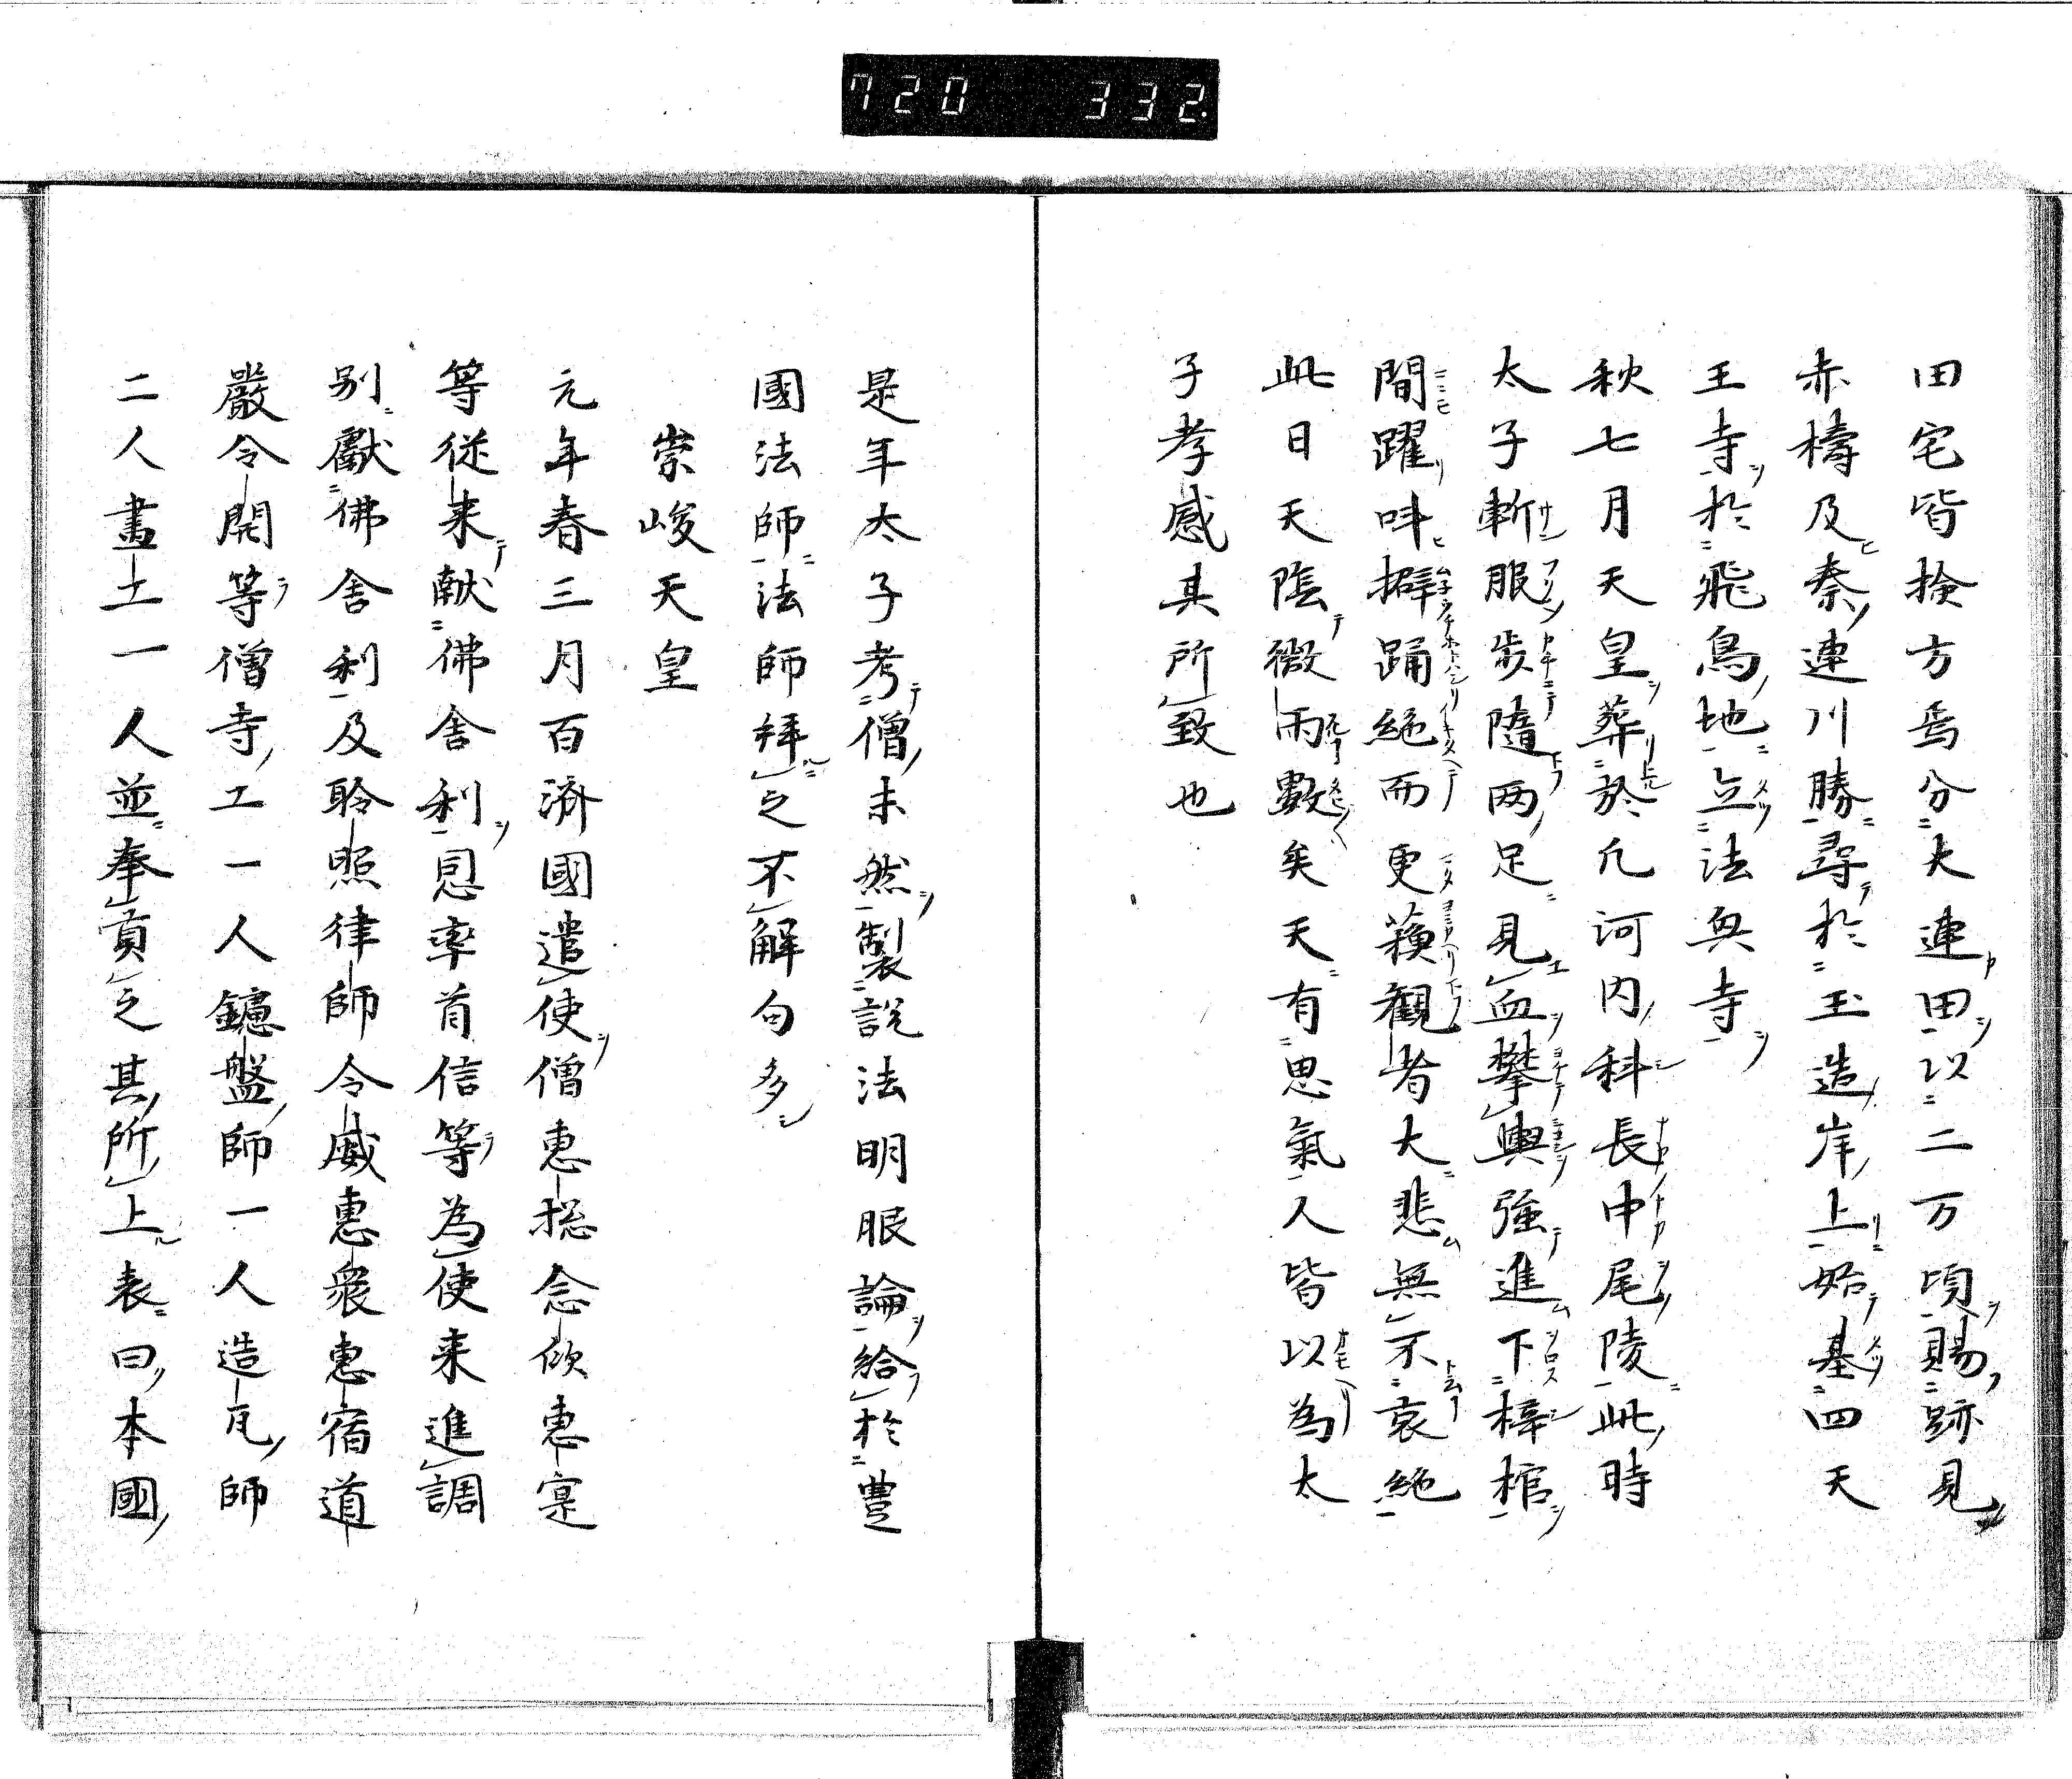 720 332
田宅皆捡方焉分大連田以二万頃賜跡見
赤檮及秦連川勝尋於玉造岸上始基四天
王寺於飛鳥地立法興寺
秋七月天皇葬於凢河内科長中尾陵此時
太子斬服歩隨両足見血攀輿強進下梓棺
間躍呌擗踊絶而更蘓観者大悲無不哀絶
此日天陰微雨數矣天有思氣人皆以為太
子孝感其所致也
是年太子考僧未然製説法明眼論給於豊
國法師法師拜之不解句多
崇峻天皇
元年春三月百済國遣使僧恵揔念俽恵寔
等従来献佛舎利恩率首信等為使来進調
别獻佛舎利及聆照律師令威恵衆恵宿道
嚴令開等僧寺工一人鑪盤師一人造瓦師
二人畫工一人並奉貢之其所上表曰本國